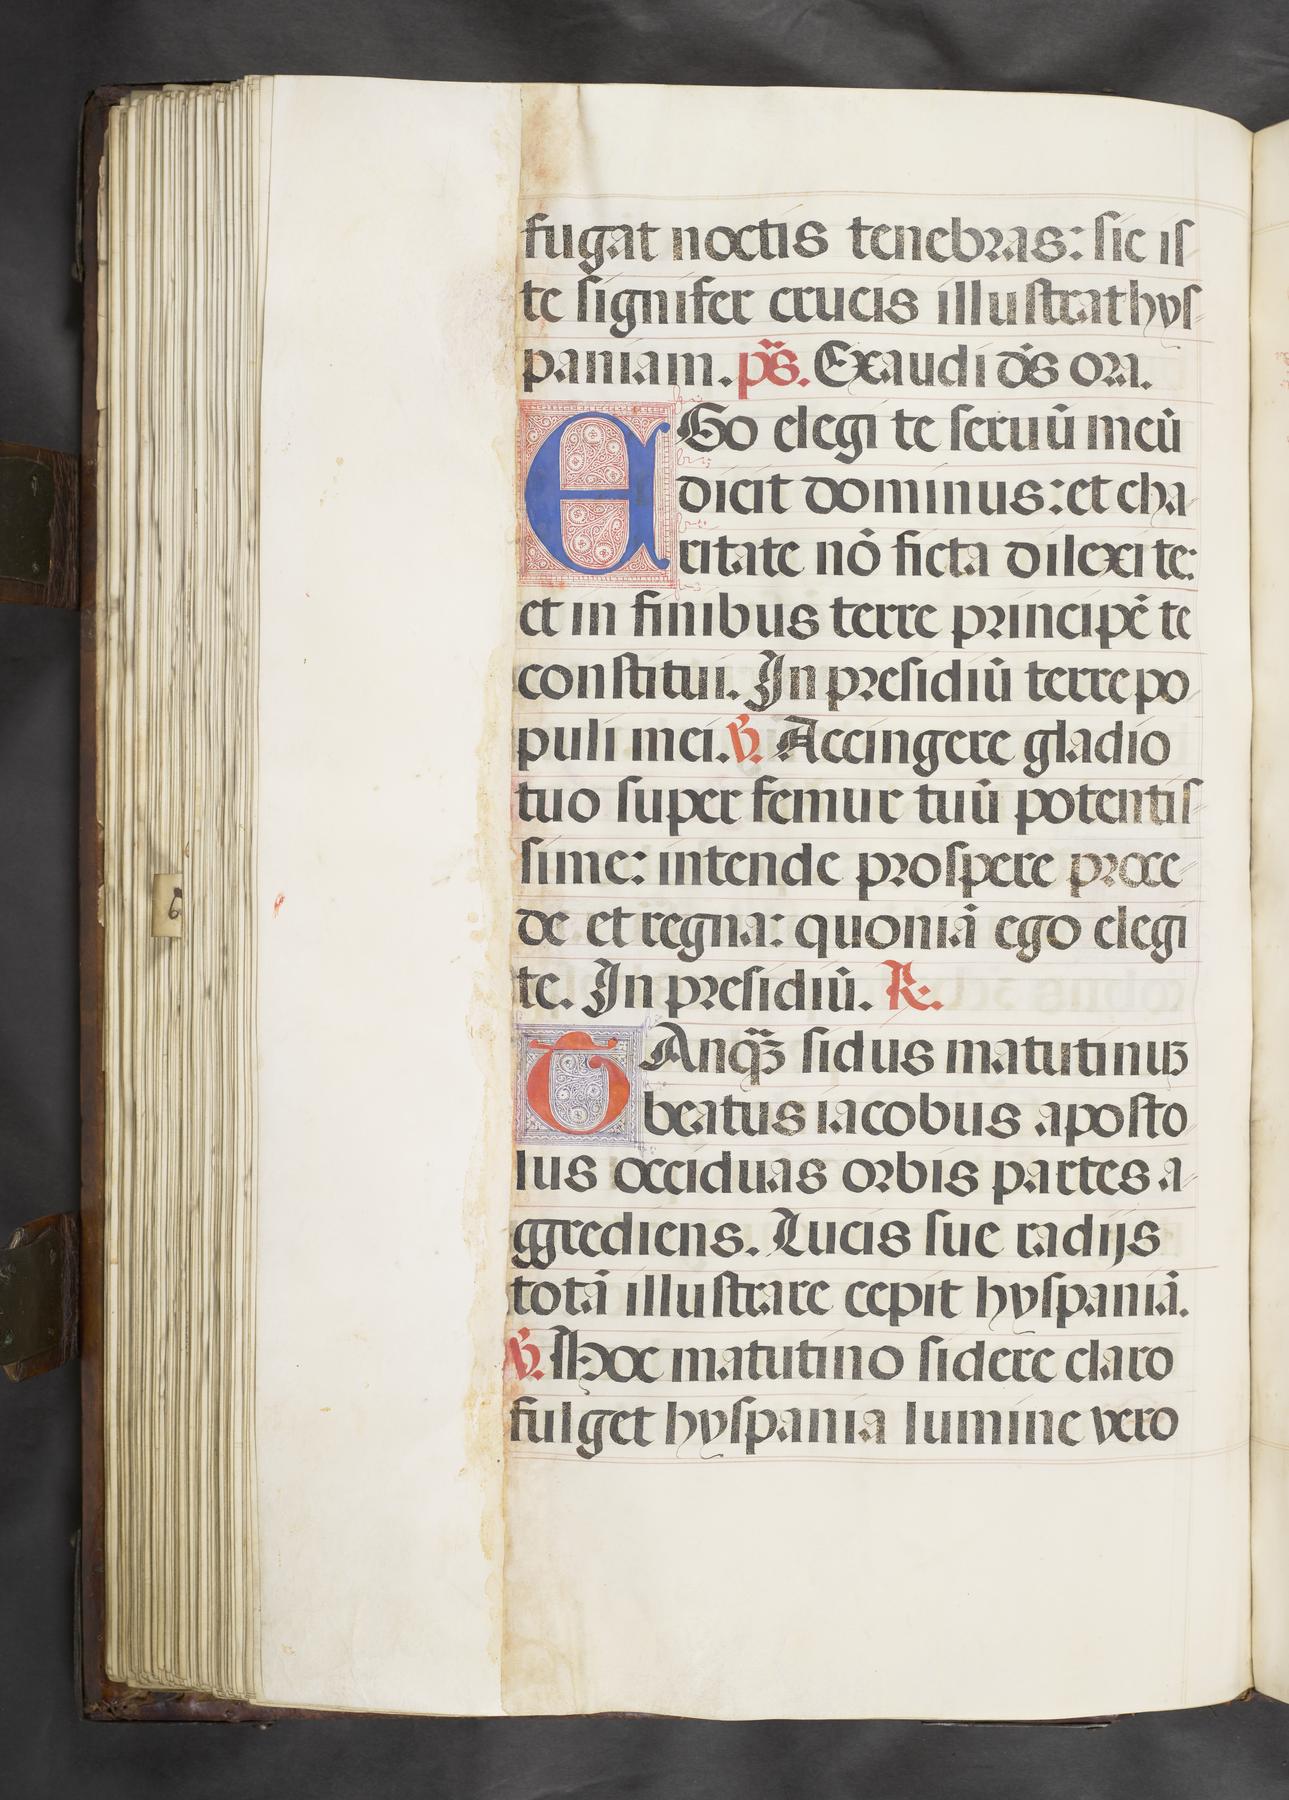 fugat noctis tenebras: sic is
te signifer crucis illustrat hys
paniam. ps̄. Exaudi ds̄ ora.
EGo elegi te seruū meū
dicit dominus: et cha
ritate nō ficta dilexi te:
et in finibus terre principē te
constitui. In presidiū terre po
puli mei. ℣. Accingere gladio
tuo super femur tuū potentis
sime: intende prospere proce
de et regna: quoniā ego elegi
te. In presidiū. ℟.
TAnqȝ̄ sidus matutinuȝ
beatus iacobus aposto
lus occiduas orbis partes a
ggrediens. Lucis sue radijs
totā illustrare cepit hyspaniā.
℣. Hoc matutino sidere claro
fulget hyspania lumine vero
6